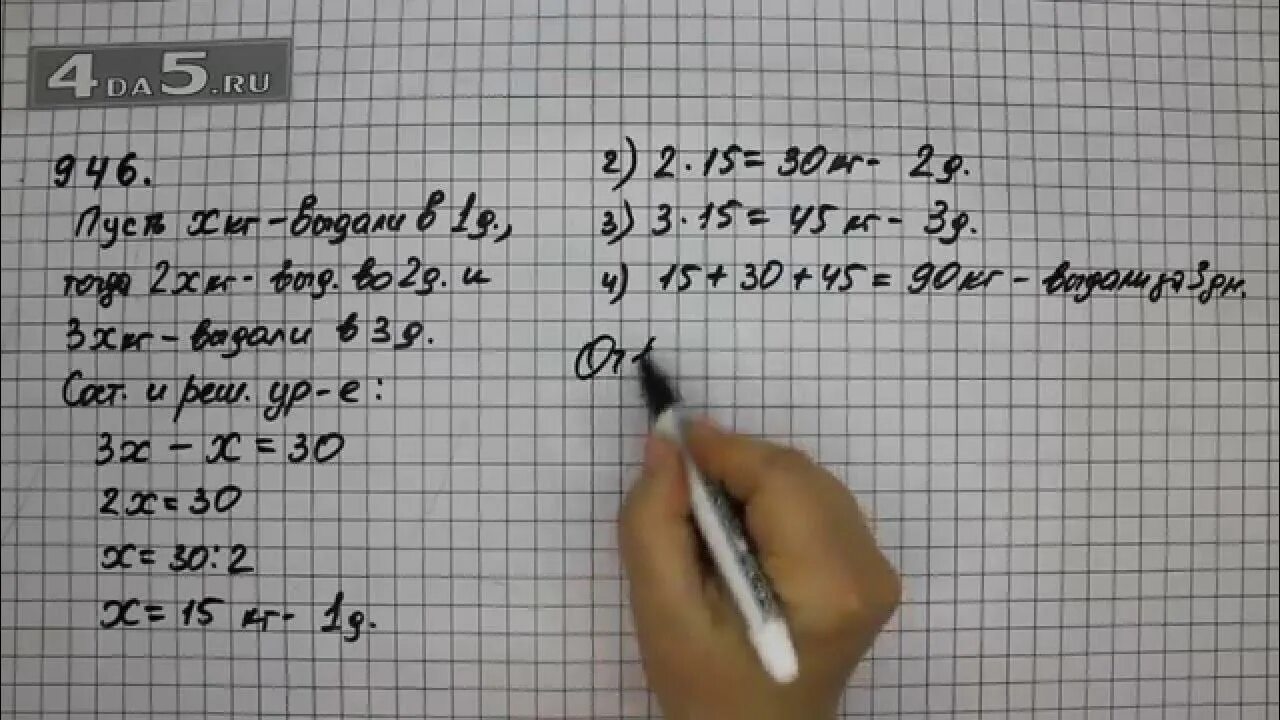 4DA5.RU
946.
Пусть x кг - выдали в 1д.,
тогда 2x кг - выд. во 2д. и
3x кг - выдали в 3д.
Сост. и реш. ур-е:
3x - x = 30
2x = 30
x = 30:2
x = 15 кг - 1д.
2) 2·15 = 30 кг - 2д.
3) 3·15 = 45 кг - 3д.
4) 15 + 30 + 45 = 90 кг - выдали за 3 дн.
От